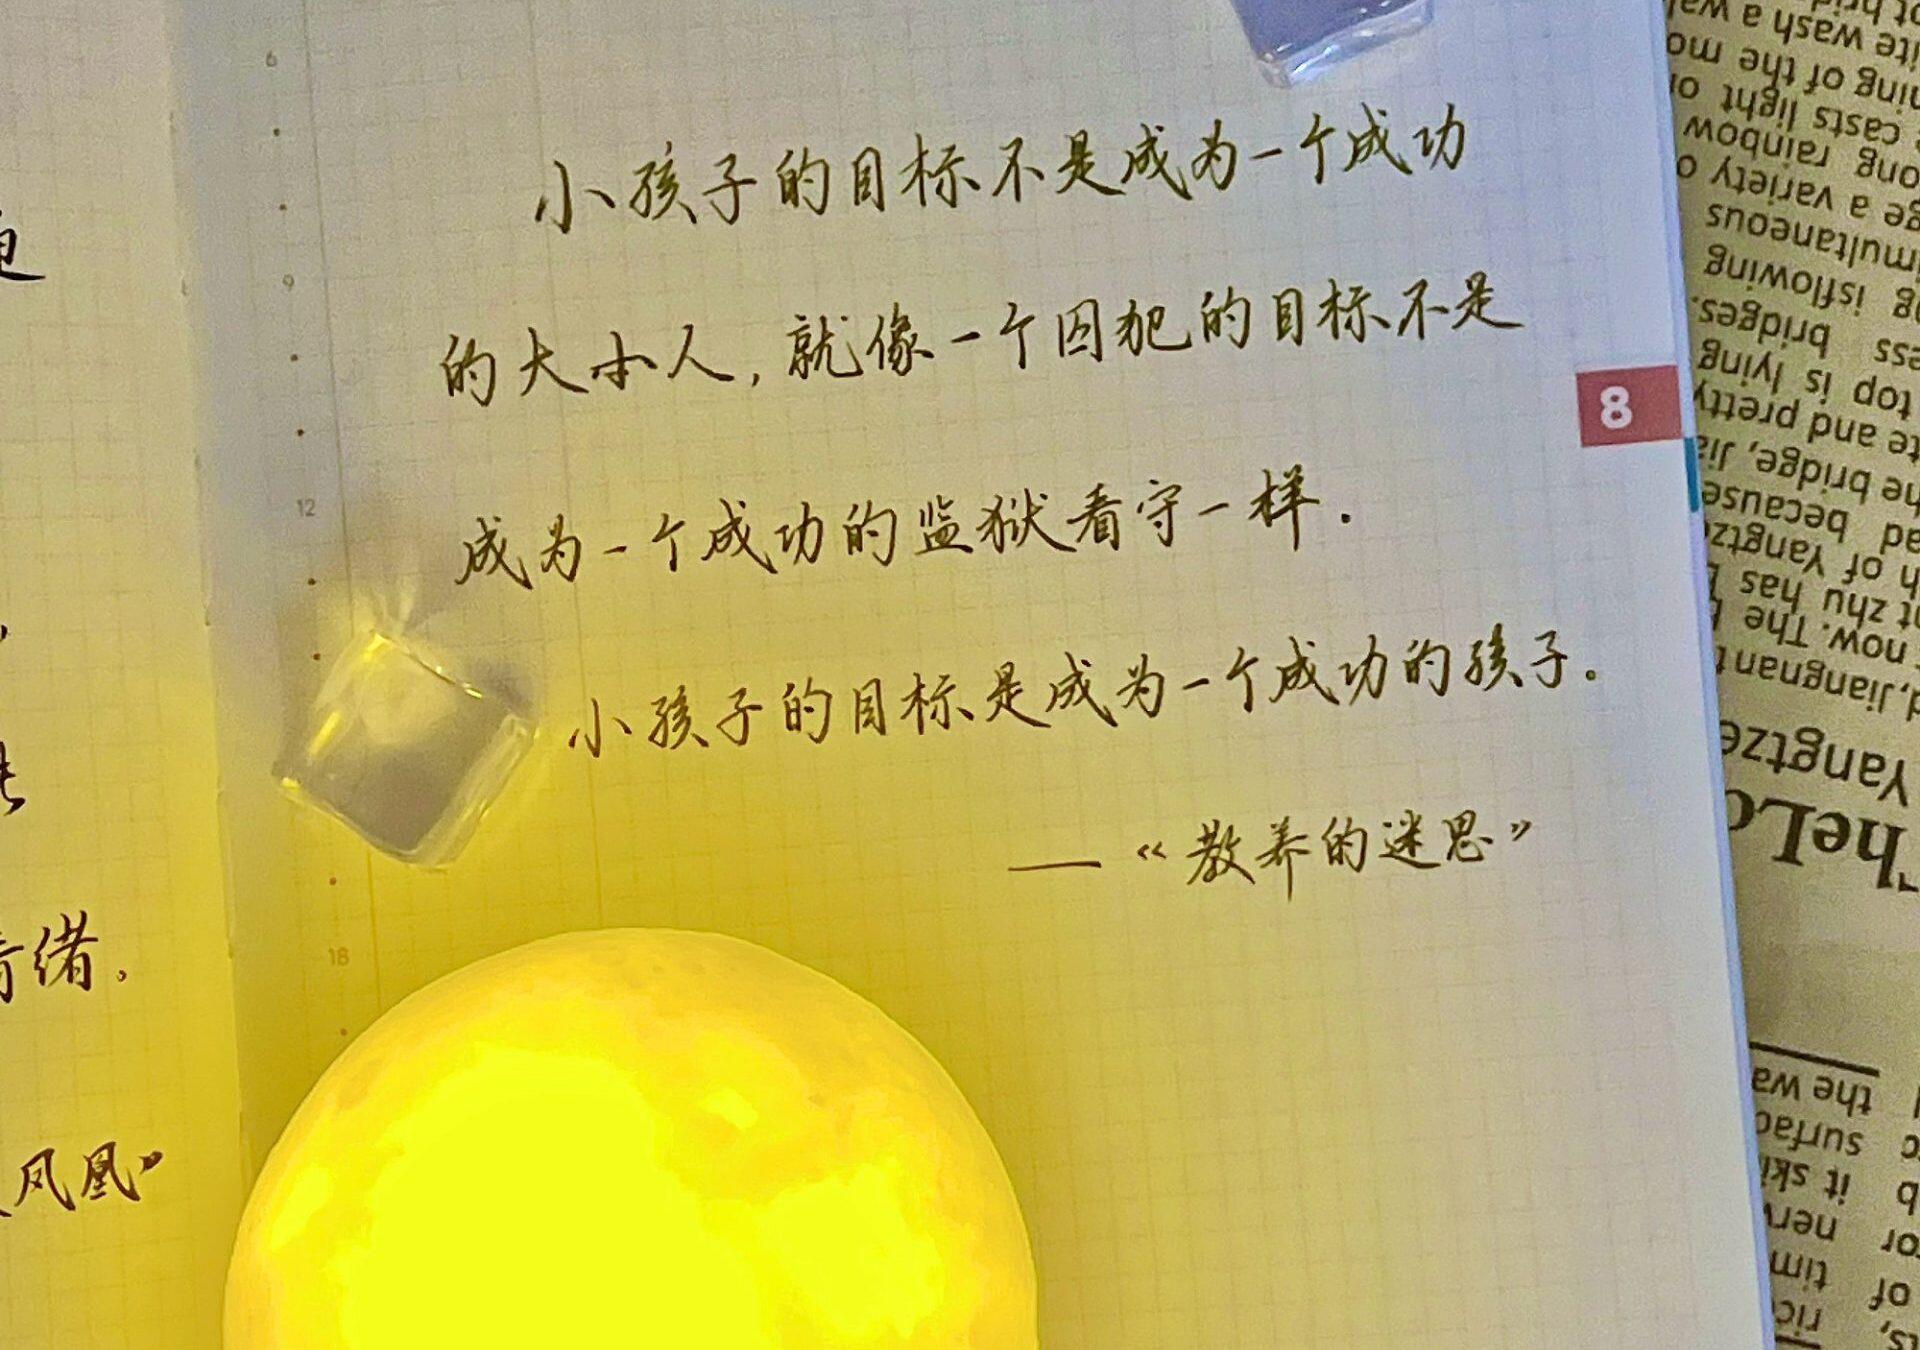 6
小孩子的目标不是成为一个成功
9
的大小人，就像一个囚犯的目标不是
8
12
成为一个成功的监狱看守一样.
小孩子的目标是成为一个成功的孩子.
——《教养的迷思》
18
绪。
凤凰》
the bridge, Jia
because
h of Yangtz
zhu has
now. The
d, Jiangnan t
Yangtze
top is lying
te and pretty
ess bridges.
g isflowing
multaneous
ge a variety o
ong rainbow
casts light
ning of the mo
ite wash a wa
the wa
surfac
it ski